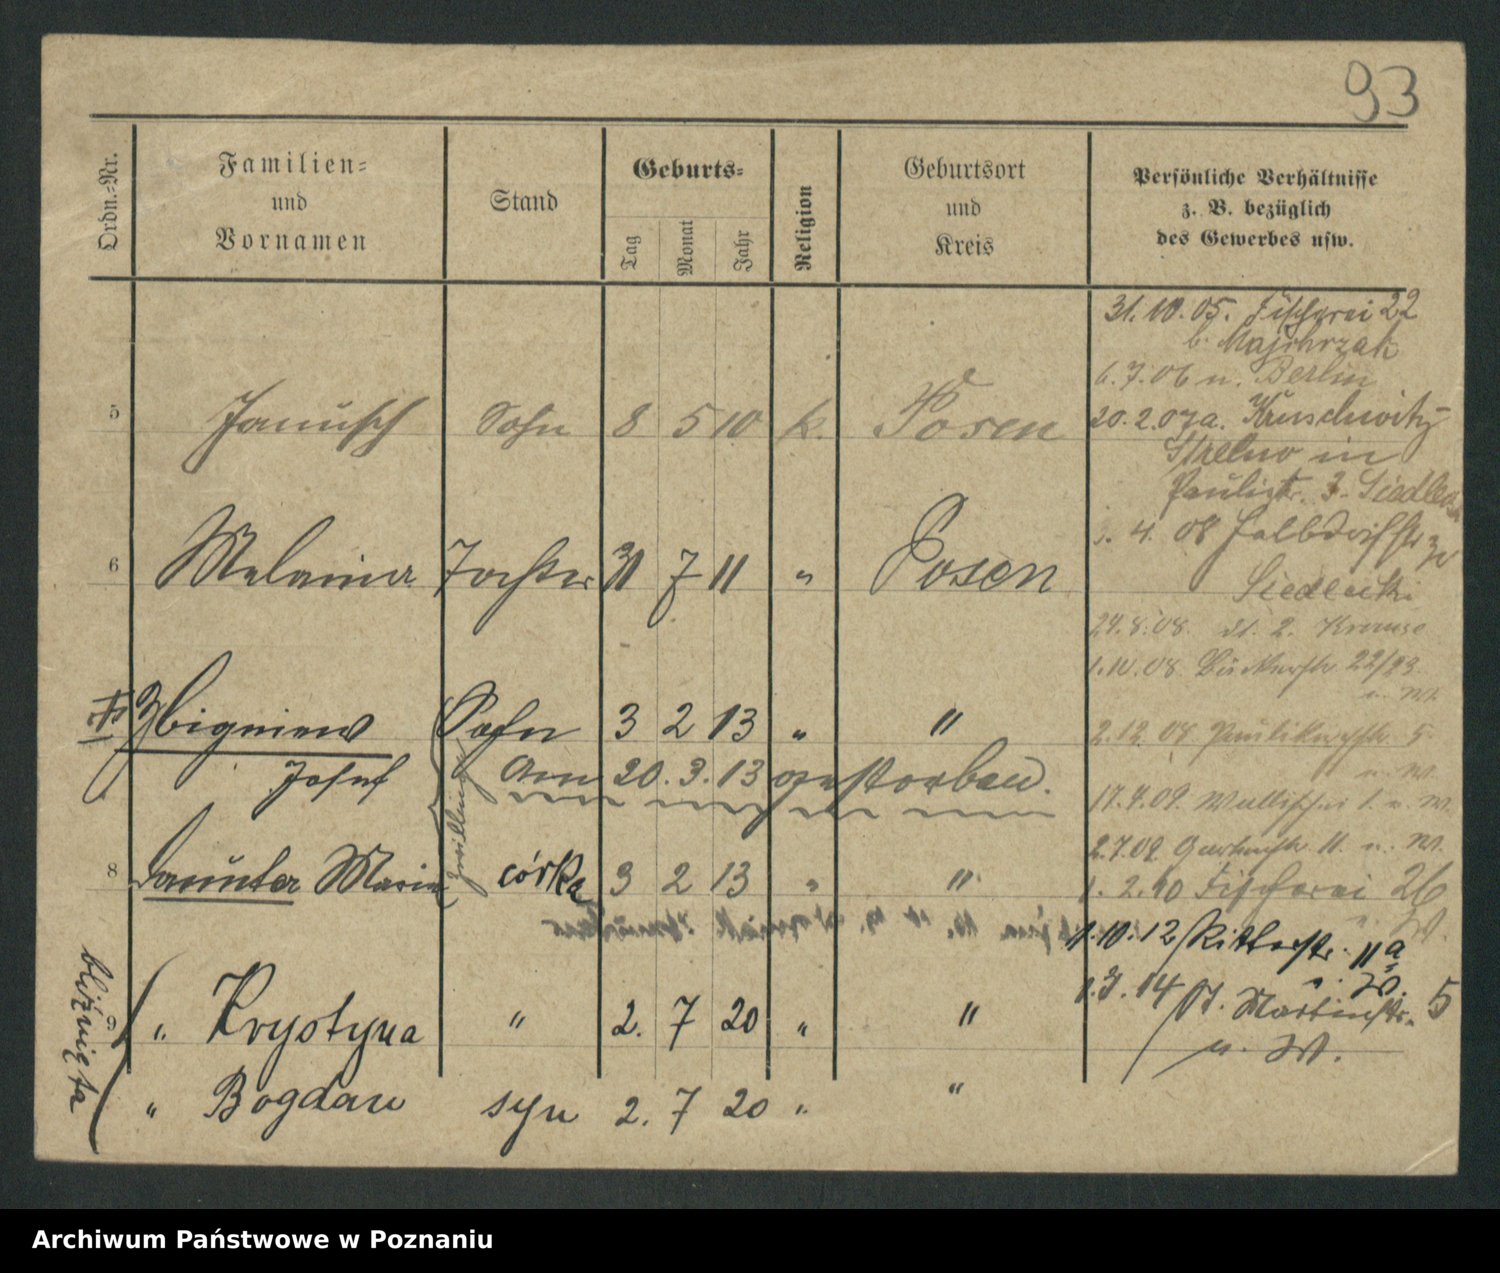 93
Ordn.=Nr.
Familien=
und
Vornamen
Stand
Geburts=
Tag
Monat
Jahr
Religion
Geburtsort
und
Kreis
Persönliche Verhältnisse
z. B. bezüglich
des Gewerbes usw.
5 Janusch Sohn 8 5 10 k. Posen
6 Melania Tochter 31 7 11 " Posen
Zbigniew Sohn 3 2 13 " "
Josef Am 20. 3. 13 gestorben.
Zwillinge
8 Maria córka 3 2 13 " "
bliźnięta
9 " Krystyna " 2. 7 20 " "
" Bogdan syn 2. 7 20 " "
31. 10. 05. Fischerei 22
b. Majchrzak
6. 7. 06 n. Berlin
20. 2. 07 a. Kruschwitz
Strelno in
Paulistr. 3. Siedlecki
4. 08
Siedlecki
24. 8. 08. 2. Krause
1. 10. 08. 22/23
u. W.
2. 12. 08 5
u. W.
17. 4. 09. Wallischei 1. u. W.
2. 7. 09. Gartenstr. 11. u. W.
1. 2. 10 Fischerei 26
u. W.
1. 10. 12 Ritterstr. 11a
u. W.
1. 7. 14 St. Martinstr. 5
u. W.
Archiwum Państwowe w Poznaniu